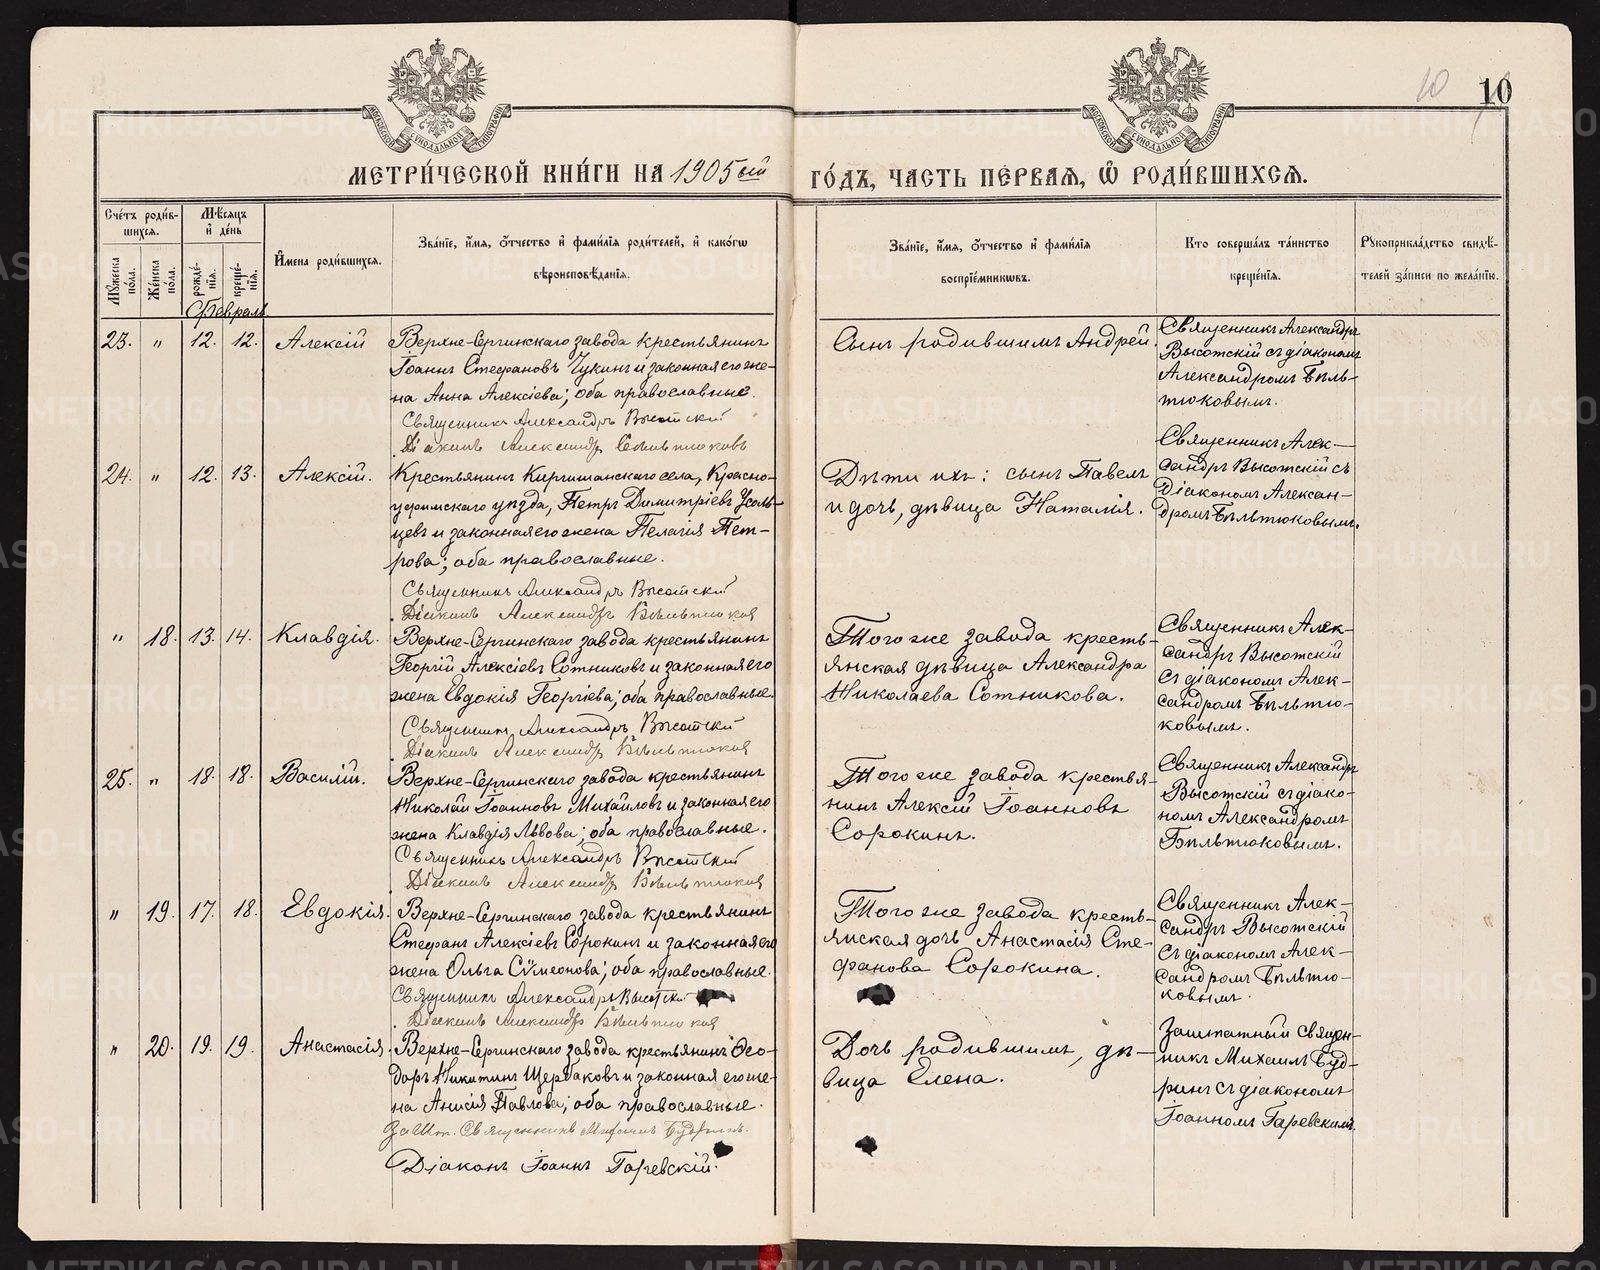 10 10
МЕТРИ́ЧЕСКОЙ КНИ́ГИ НА 1905ый ГО́ДЪ, ЧАСТЬ ПЕ́РВАЯ, Ѡ РОДИ́ВШИХСЯ.
Сче́тъ роди́в-
шихся.
Мѣ́сяцъ
и де́нь
Мꙋ́жеска
по́ла.
Же́нска
по́ла.
рожде́-
нїѧ.
креще́-
нїѧ.
Имена роди́вшихся.
Зва́нїе, и́мя, о́тчество и фами́лїя роди́телей, и како́гѡ
вѣроисповѣ́данїя.
Зва́нїе, и́мя, о́тчество и фами́лїя
воспрїе́мникѡвъ.
Кто совершáлъ та́инство
креще́нїя.
Рꙋкоприкла́дство свидѣ́-
телей за́писи по жела́нїю.
Февраль.
23. " 12. 12. Алексій
Верхне-Сергинскаго завода крестьянинъ
Іоаннъ Стефановъ Чукинъ и законная его же-
на Анна Алексіева; оба православные.
Священникъ Александръ Высотскій
Діаконъ Александръ Бѣльтюковъ
Сынъ родившимъ Андрей.
Священникъ Александръ
Высотскій съ діакономъ
Александромъ Бѣль-
тюковымъ.
24. " 12. 13. Алексій.
Крестьянинъ Киргишанскаго села, Красно-
уфимскаго уѣзда, Петръ Димитріевъ Усоль-
цевъ и законная его жена Пелагія Пет-
рова; оба православные.
Священникъ Александръ Высотскій
Діаконъ Александръ Бѣльтюковъ
Дѣти ихъ: сынъ Павелъ
и дочь, дѣвица Наталія.
Священникъ Алек-
сандръ Высотскій съ
діакономъ Алексан-
дромъ Бѣльтюковымъ.
" 18. 13. 14. Клавдія.
Верхне-Сергинскаго завода крестьянинъ
Георгій Алексіевъ Сотниковъ и законная его
жена Евдокія Георгіева; оба православные.
Священникъ Александръ Высотскій
Діаконъ Александръ Бѣльтюковъ
Того же завода кресть-
янская дѣвица Александра
Николаева Сотникова.
Священникъ Алек-
сандръ Высотскій
съ діакономъ Алек-
сандромъ Бѣльтю-
ковымъ.
25. " 18. 18. Василій.
Верхне-Сергинскаго завода крестьянинъ
Николай Іоанновъ Михайловъ и законная его
жена Клавдія Львова; оба православные.
Священникъ Александръ Высотскій
Діаконъ Александръ Бѣльтюковъ
Того же завода крестья-
нинъ Алексій Іоанновъ
Сорокинъ.
Священникъ Александръ
Высотскій съ діако-
номъ Александромъ
Бѣльтюковымъ.
" 19. 17. 18. Евдокія.
Верхне-Сергинскаго завода крестьянинъ
Стефанъ Алексіевъ Сорокинъ и законная его
жена Ольга Сѵмеонова; оба православные.
Священникъ Александръ Высотскій
Діаконъ Александръ Бѣльтюковъ
Того же завода кресть-
янская дочь Анастасія Сте-
фанова Сорокина.
Священникъ Алек-
сандръ Высотскій
съ діакономъ Алек-
сандромъ Бѣльтю-
ковымъ.
" 20. 19. 19. Анастасія.
Верхне-Сергинскаго завода крестьянинъ Ѳео-
доръ Никитинъ Щербаковъ и законная его же-
на Анисія Павлова; оба православные.
Зашт. Священникъ Михаилъ Будринъ.
Діаконъ Іоаннъ Гаревскій.
Дочь родившимъ, дѣ-
вица Елена.
Заштатный священ-
никъ Михаилъ Буд-
ринъ съ діакономъ
Іоанномъ Гаревскимъ.